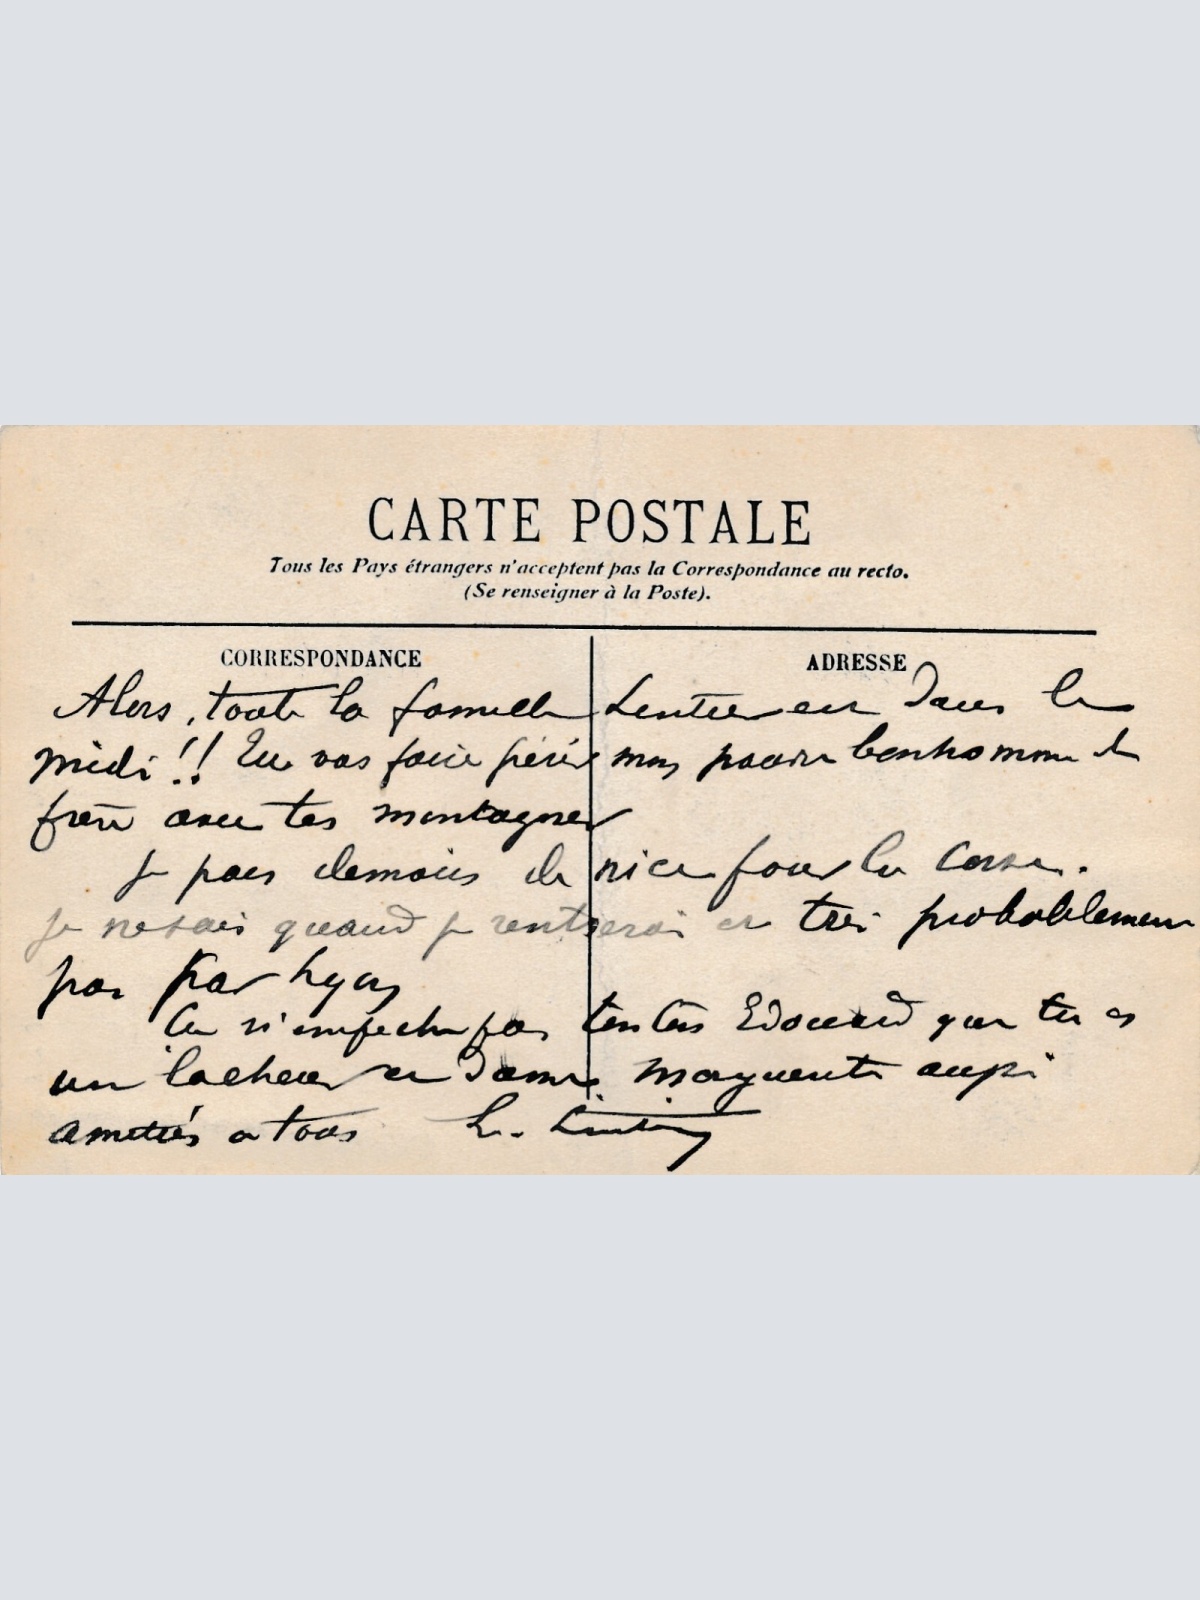 CARTE POSTALE
Tous les Pays étrangers n'acceptent pas la Correspondance au recto.
(Se renseigner à la Poste).
CORRESPONDANCE
ADRESSE
Alors, toute la famille Lentier est dans le
midi !! Tu vas faire périr mon pauvre bonhomme de
frère avec tes montagnes
je pars demain de nice pour la Corse.
je ne sais quand je rentrerai et très probablement
pas par Lyon
Ca n'empeche pas Edouard que tu es
un lacheur et dame Marguerite aussi
amitiés a tous L.